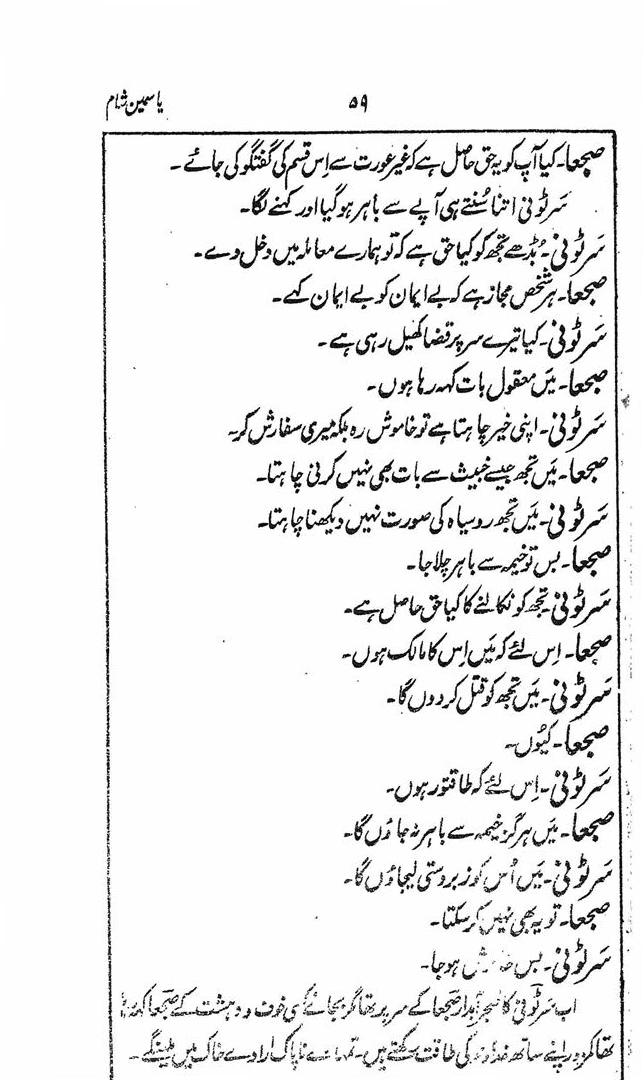 یاسمین شام
۵۹
صجعا۔ کیا آپ کو یہ حق حاصل ہے کہ غیر عورت سے اِس قسم کی گفتگو کی جائے۔
سَرٹونی اتنا سُنتے ہی آپے سے باہر ہو گیا اور کہنے لگا۔
سَرٹونی۔ بُڈھے تجھ کو کیا حق ہے کہ تو ہمارے معاملہ میں دخل دے۔
صجعا۔ ہر شخص مجاز ہے کہ بے ایمان کو بے ایمان کہے۔
سَرٹونی۔ کیا تیرے سر پر قضا کھیل رہی ہے۔
صجعا۔ میَں معقول بات کہہ رہا ہوں۔
سَرٹونی۔ اپنی خیر چاہتا ہے تو خاموش رہ بلکہ میری سفارش کر۔
صجعا۔ میَں تجھ جیسے خبیث سے بات بھی نہیں کرنی چاہتا۔
سَرٹونی۔ میَں تجھ روسیاہ کی صورت نہیں دیکھنا چاہتا۔
صجعا۔ بس تو خیمہ سے باہر چلا جا۔
سَرٹونی۔ تجھ کو نکالنے کا کیا حق حاصل ہے۔
صجعا۔ اِس لئے کہ میَں اِس کا مالک ہوں۔
سَرٹونی۔ میَں تجھ کو قتل کر دوں گا۔
صجعا۔ کیُوں۔
سَرٹونی۔ اِس لئے کہ طاقتور ہوں۔
صجعا۔ میَں ہرگز خیمہ سے باہر نہ جاؤں گا۔
سَرٹونی۔ میَں اُس کو زبردستی لیجاؤں گا۔
صجعا۔ تو یہ بھی نہیں کر سکتا۔
سَرٹونی۔ بس خاموش ہو جا۔
اب سَرٹونی کا خنجر آبدار صجعا کے سر پر تھا مگر بجائے کسی خوف و دہشت کے صجعا کہہ رہا
تھا کہ اپنے ساتھ خداوند کی طاقت رکھتے ہیں۔ تمہارے ناپاک ارادے خاک میں ملینگے۔